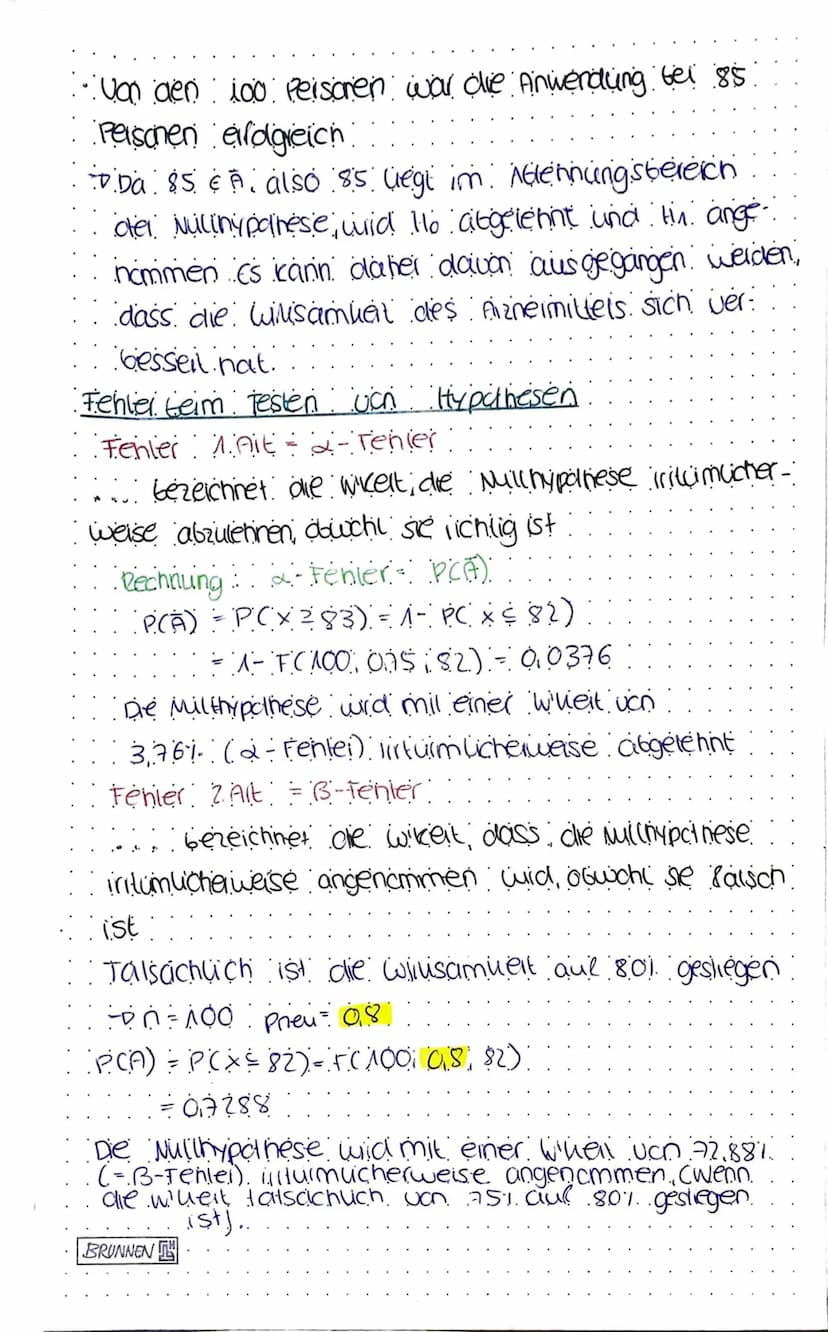 · Von den 100 Personen war die Anwendung bei 85
Personen erfolgreich
→ Da 85 ∈ Ā, also 85 liegt im Ablehnungsbereich
der Nullhypothese, wird H₀ abgelehnt und H₁ ange-
nommen. Es kann daher davon ausgegangen werden,
dass die Wirksamkeit des Arzneimittels sich ver-
bessert hat.
Fehler beim Testen von Hypothesen
Fehler 1. Art = α-Fehler
... bezeichnet die W'keit, die Nullhypothese irrtümlicher-
weise abzulehnen, obwohl sie richtig ist
Rechnung: α-Fehler = P(Ā)
P(Ā) = P(X ≥ 83) = 1 - P(X ≤ 82)
= 1 - F(100; 0,75; 82) = 0,0376
Die Nullhypothese wird mit einer W'keit von
3,76% (α-Fehler) irrtümlicherweise abgelehnt
Fehler 2. Art = β-Fehler
... bezeichnet die W'keit, dass die Nullhypothese
irrtümlicherweise angenommen wird, obwohl sie falsch
ist
Tatsächlich ist die Wirksamkeit auf 80% gestiegen
→ n = 100 pneu = 0,8
P(A) = P(X ≤ 82) = F(100; 0,8; 82)
= 0,7288
Die Nullhypothese wird mit einer W'keit von 72,88%
(= β-Fehler) irrtümlicherweise angenommen, (wenn
die W'keit tatsächlich von 75% auf 80% gestiegen
ist).
BRUNNEN